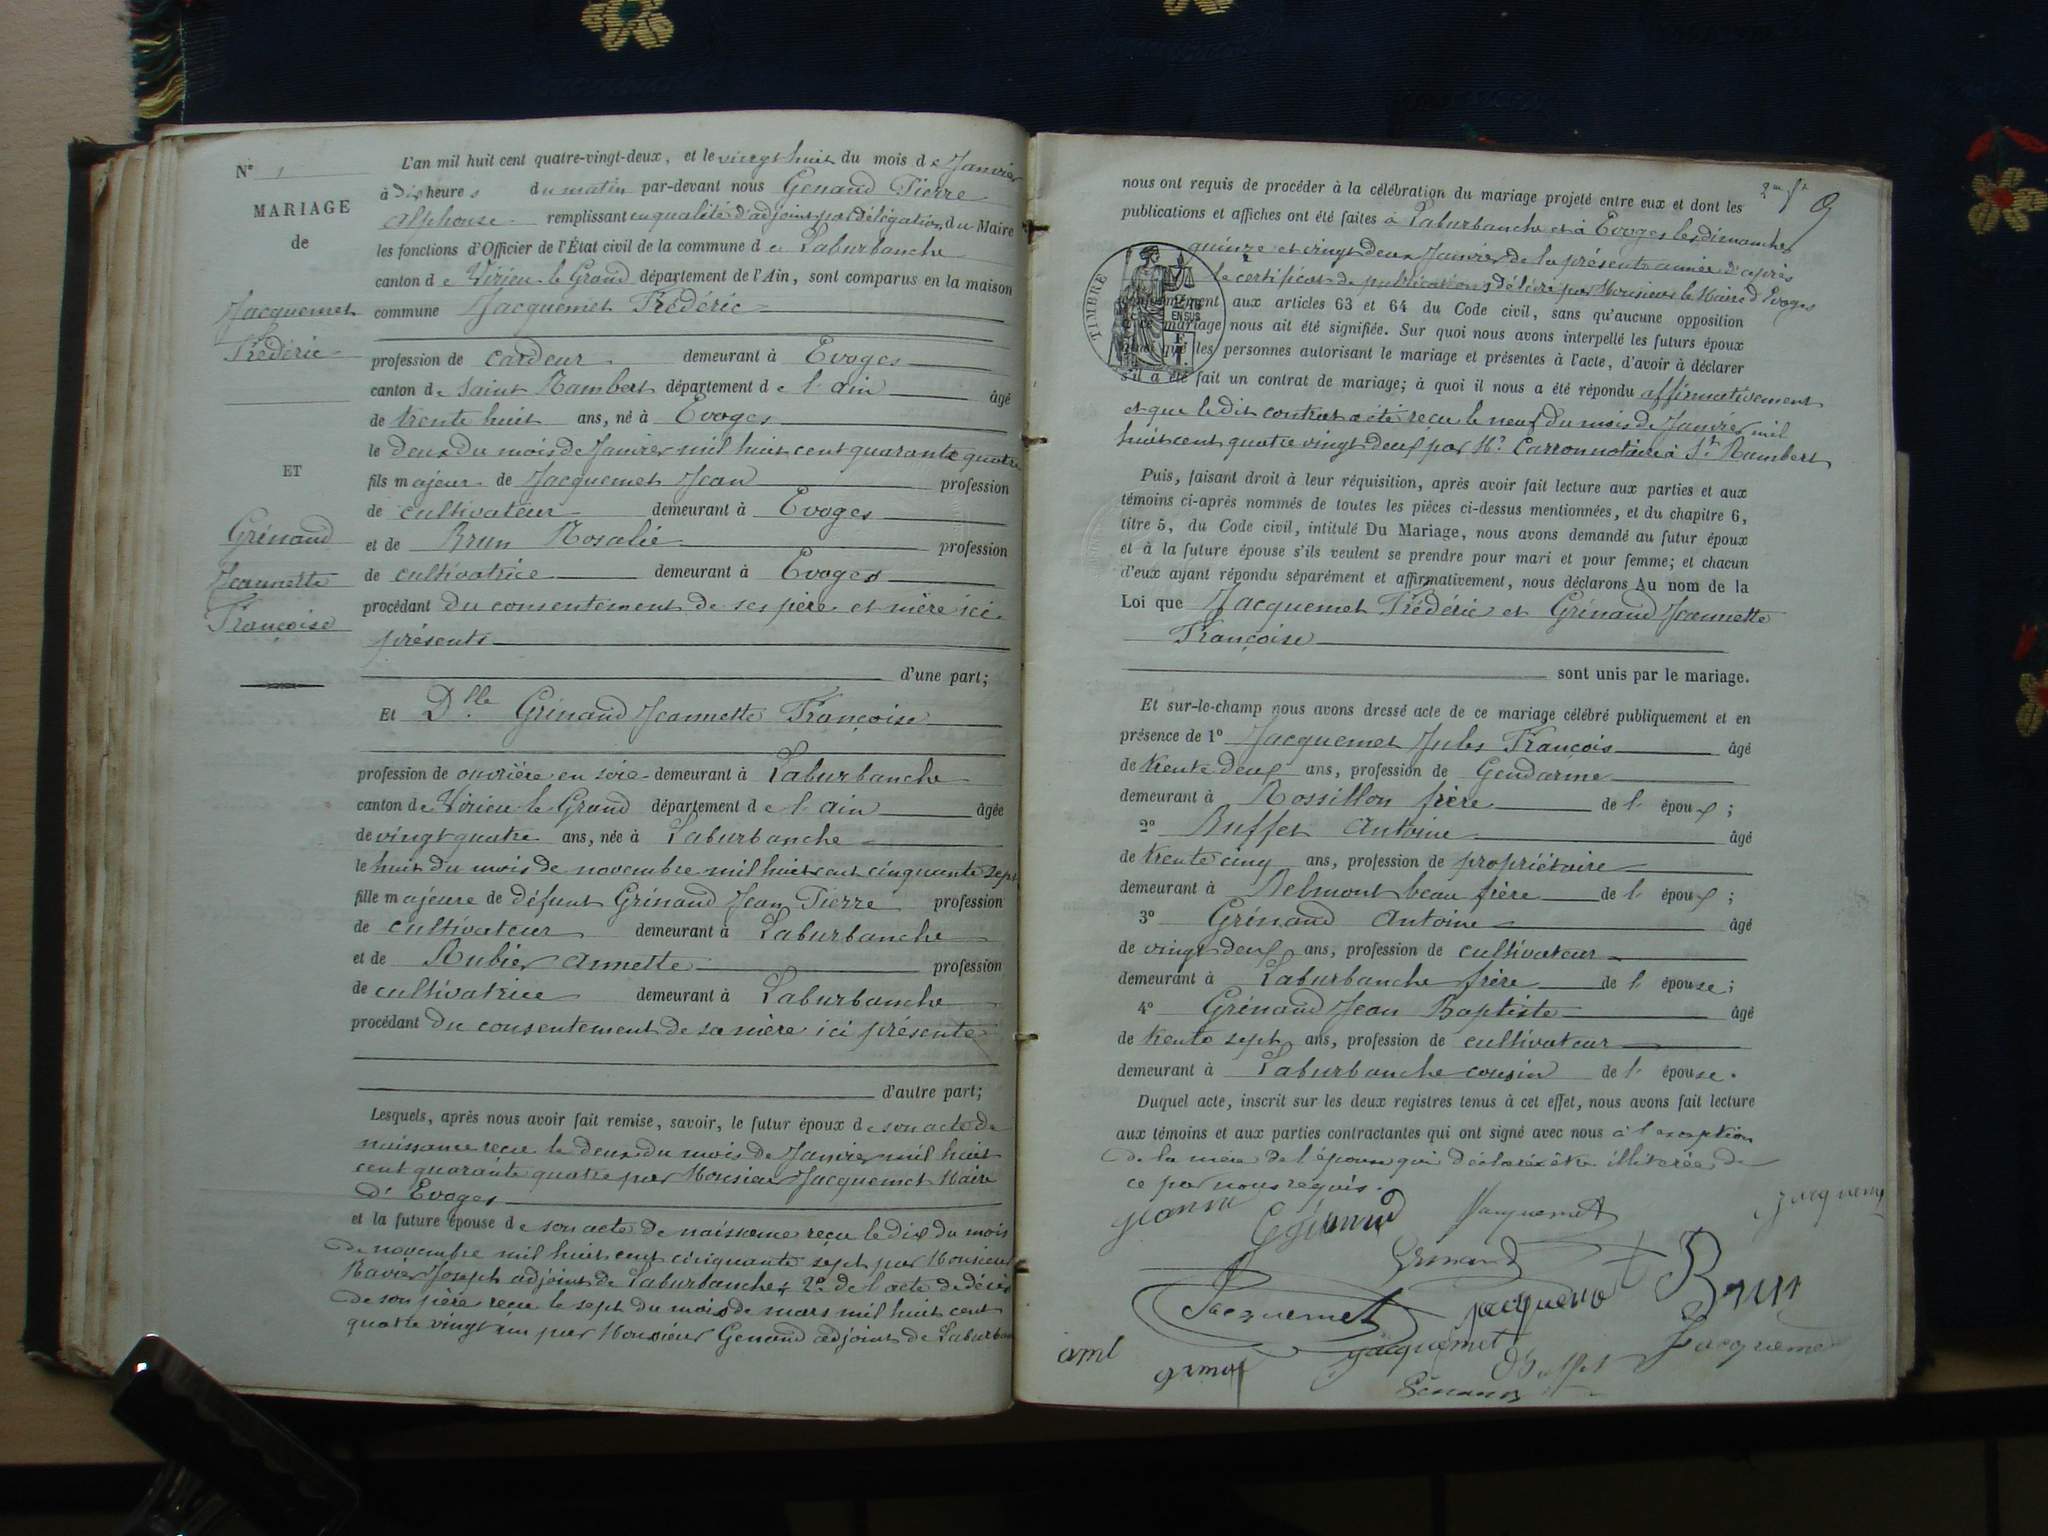 N° 1
MARIAGE
de
Jacquemet
Frédéric
ET
Grénaud
Jeannette
Françoise
L'an mil huit cent quatre-vingt-deux, et le vingt huit du mois de Janvier
à dix heures du matin par-devant nous Genaud Pierre
Alphonse remplissant en qualité d'adjoint par délégation du Maire
les fonctions d'Officier de l'État civil de la commune de Laburbanche
canton de Virieu-le-Grand département de l'Ain, sont comparus en la maison
commune Jacquemet Frédéric
profession de cardeur demeurant à Evoges
canton de Saint Rambert département de l'ain âgé
de trente huit ans, né à Evoges
le deux du mois de Janvier mil huit cent quarante quatre
fils majeur de Jacquemet Jean profession
de cultivateur demeurant à Evoges
et de Brun Rosalie profession
de cultivatrice demeurant à Evoges
procédant du consentement de ses père et mère ici
présents
d'une part;
Et Dlle Grénaud Jeannette Françoise
profession de ouvrière en soie demeurant à Laburbanche
canton de Virieu-le-Grand département de l'ain âgée
de vingt quatre ans, née à Laburbanche
le huit du mois de novembre mil huit cent cinquante sept
fille majeure de défunt Grénaud Jean Pierre profession
de cultivateur demeurant à Laburbanche
et de Rubier Annette profession
de cultivatrice demeurant à Laburbanche
procédant du consentement de sa mère ici présente
d'autre part;
Lesquels, après nous avoir fait remise, savoir, le futur époux de son acte de
naissance reçu le deux du mois de Janvier mil huit
cent quarante quatre par Monsieur Jacquemet Maire
d'Evoges
et la future épouse de son acte de naissance reçu le dix du mois
de novembre mil huit cent cinquante sept par Monsieur
Ravier Joseph adjoint de Laburbanche 2° de l'acte de décès
de son père reçu le sept du mois de mars mil huit cent
quatre vingt un par Monsieur Genaud adjoint de Laburban
9
nous ont requis de procéder à la célébration du mariage projeté entre eux et dont les
publications et affiches ont été faites à Laburbanche et à Evoges les dimanches
quinze et vingt deux Janvier de la présente année d'après
le certificat de publications délivré par Monsieur le Maire d'Evoges
TIMBRE
conformément aux articles 63 et 64 du Code civil, sans qu'aucune opposition
à ce mariage nous ait été signifiée. Sur quoi nous avons interpellé les futurs époux
ainsi que les personnes autorisant le mariage et présentes à l'acte, d'avoir à déclarer
s'il a été fait un contrat de mariage; à quoi il nous a été répondu affirmativement
et que le dit contrat a été reçu le neuf du mois de Janvier mil
huit cent quatre vingt deux par Me Carron notaire à St Rambert
Puis, faisant droit à leur réquisition, après avoir fait lecture aux parties et aux
témoins ci-après nommés de toutes les pièces ci-dessus mentionnées, et du chapitre 6,
titre 5, du Code civil, intitulé Du Mariage, nous avons demandé au futur époux
et à la future épouse s'ils veulent se prendre pour mari et pour femme; et chacun
d'eux ayant répondu séparément et affirmativement, nous déclarons Au nom de la
Loi que Jacquemet Frédéric et Grénaud Jeannette
Françoise
sont unis par le mariage.
Et sur-le-champ nous avons dressé acte de ce mariage célébré publiquement et en
présence de 1° Jacquemet Jules François âgé
de trente deux ans, profession de Gendarme
demeurant à Rossillon frère de l'époux;
2° Buffet Antoine âgé
de trente cinq ans, profession de propriétaire
demeurant à Belmont beau frère de l'époux;
3° Grénaud Antoine âgé
de vingt deux ans, profession de cultivateur
demeurant à Laburbanche frère de l'épouse;
4° Grénaud Jean Baptiste âgé
de trente sept ans, profession de cultivateur
demeurant à Laburbanche cousin de l'épouse.
Duquel acte, inscrit sur les deux registres tenus à cet effet, nous avons fait lecture
aux témoins et aux parties contractantes qui ont signé avec nous à l'exception
de la mère de l'épouse qui a déclaré être illitérée de
ce par nous requis.
Jacquemet
Brun
Jacquemet
Jacquemet